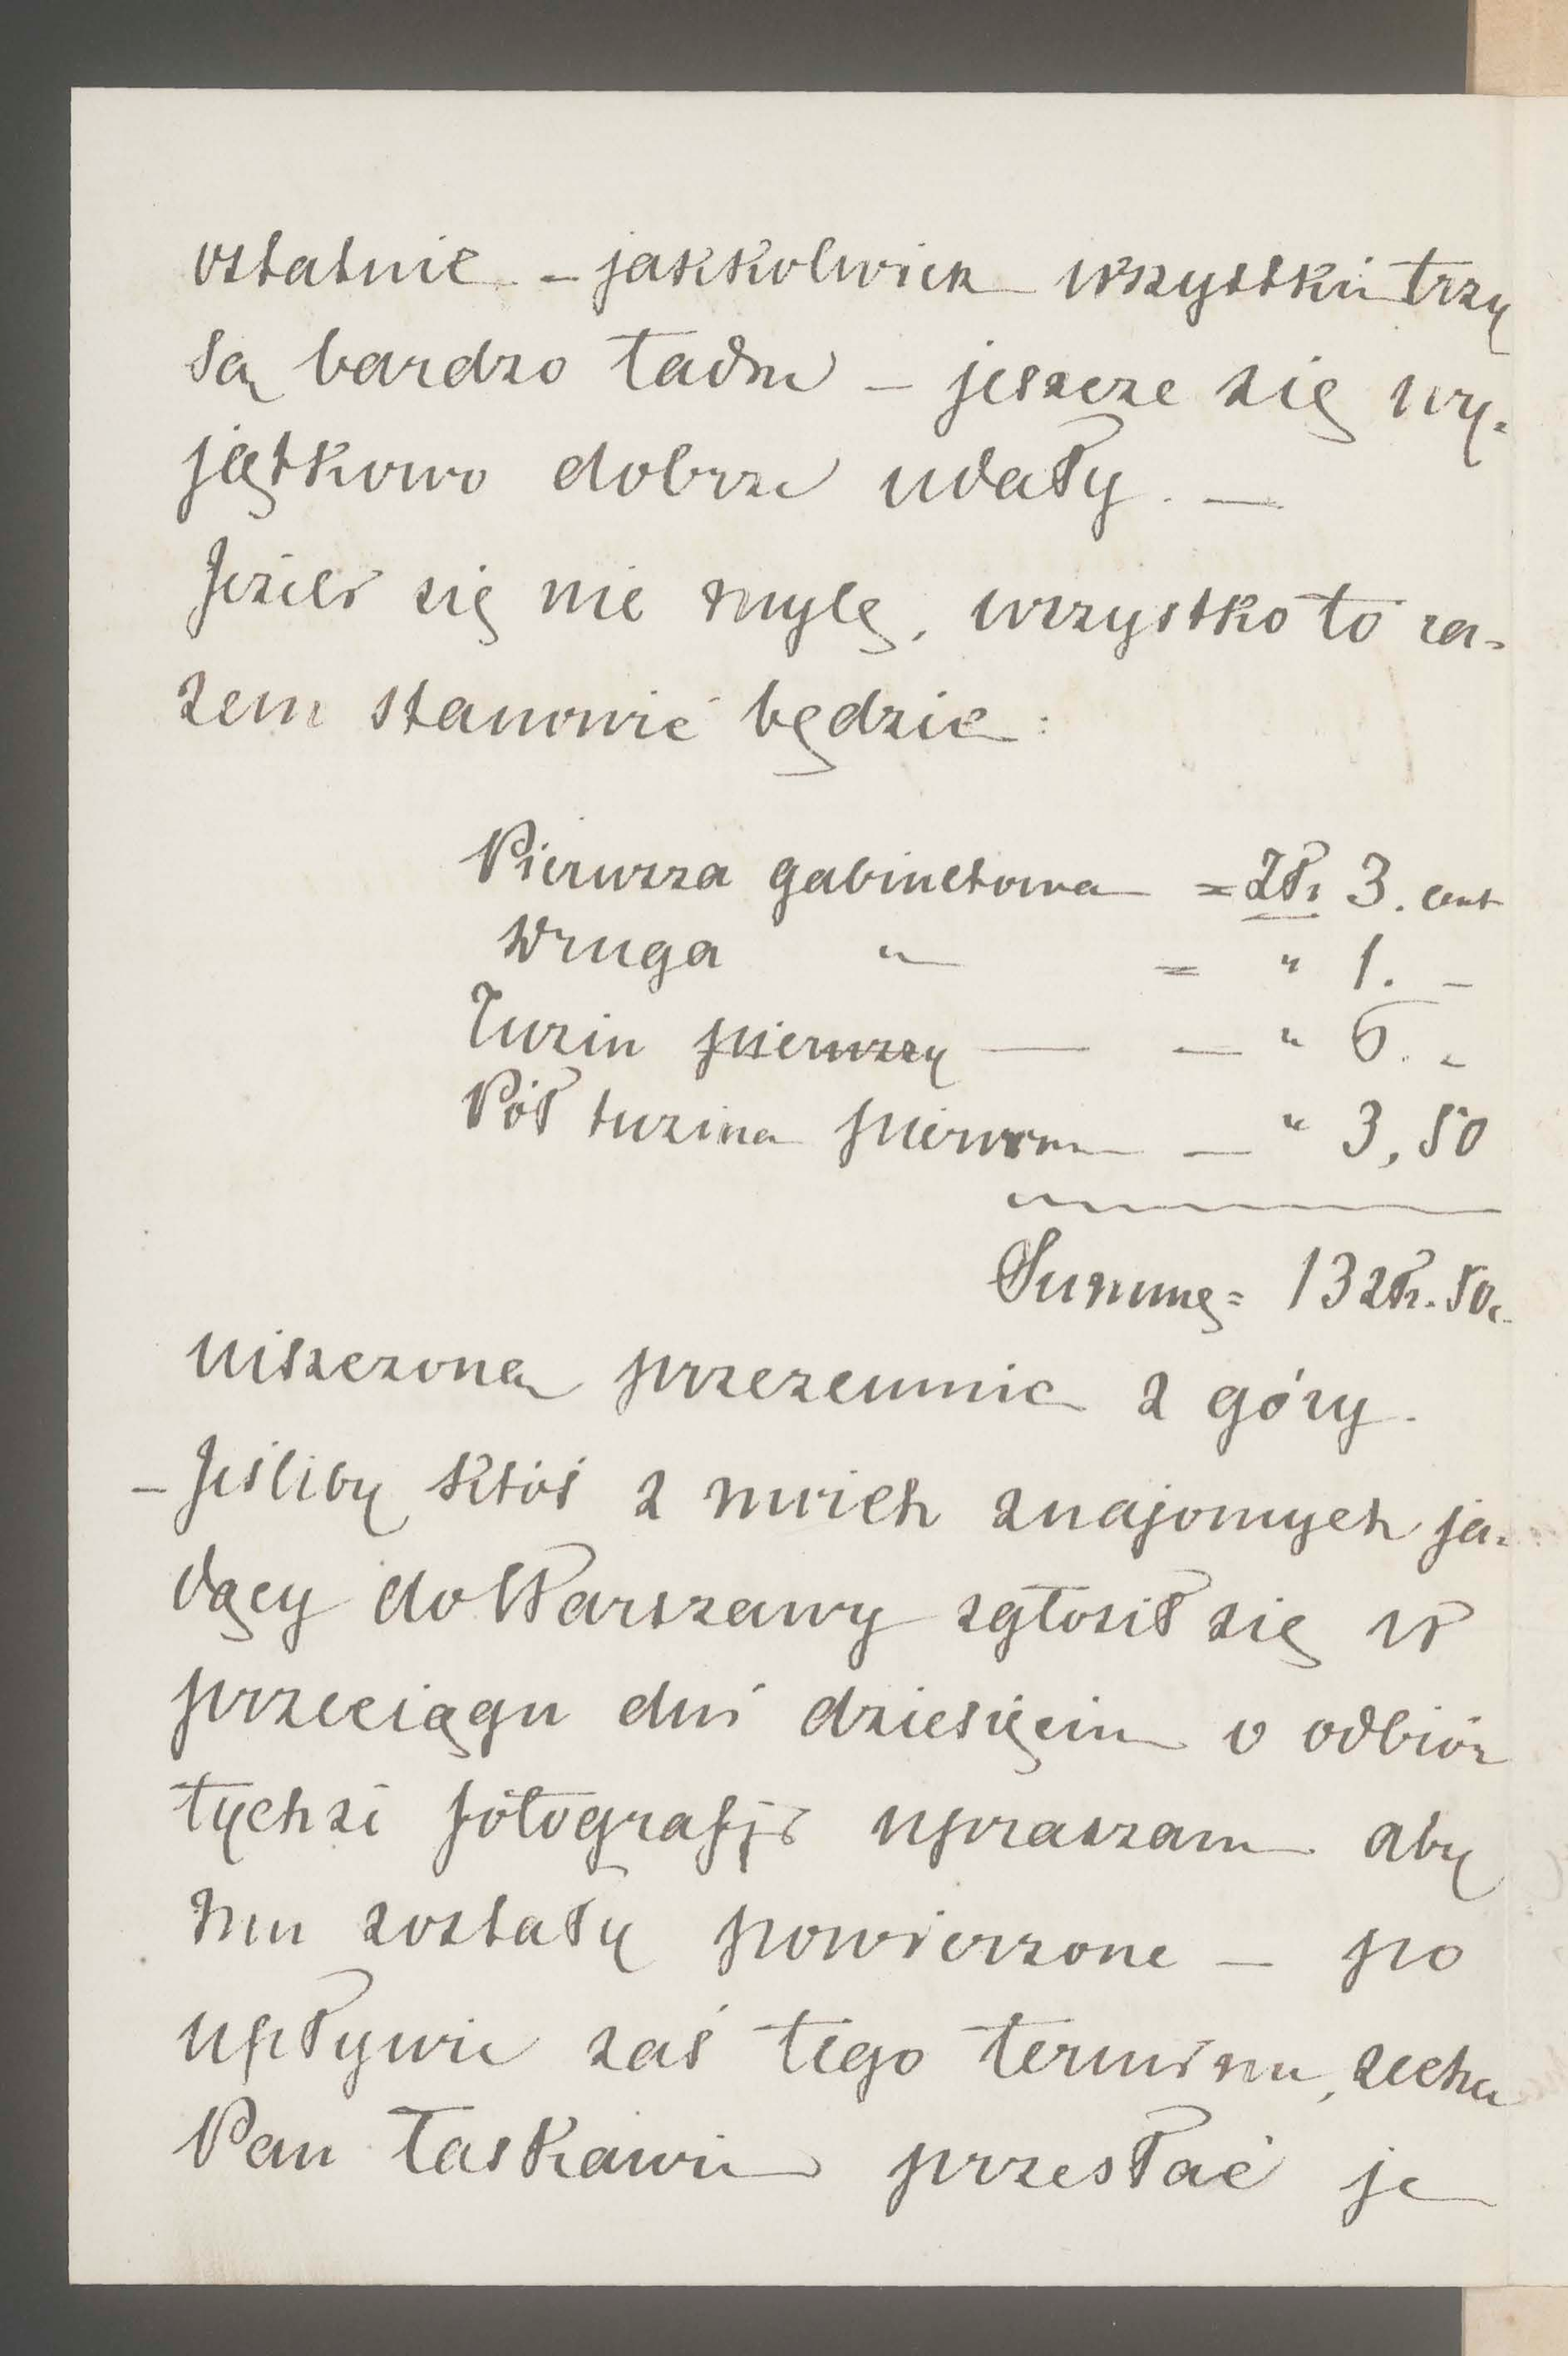 ostatnie – jakkolwiek wszystkie trzy
są bardzo ładne – jeszcze się wy-
jątkowo dobrze udały. –
Jeżeli się nie mylę, wszystko to ra-
zem stanowić będzie:
Pierwsza gabinetowa = Złr 3. cent
Druga " = " 1. –
Tuzin pierwszy — — " 6. "
Pół tuzina — " 3,50
Summę = 13 złr. 50c.
uiszczoną przezemnie z góry.
– Jeśliby ktoś z moich znajomych ja-
dący do Warszawy zgłosił się w
przeciągu dni dziesięciu o odbiór
tychże fotografji upraszam aby
mu zostały powierzone – po
upływie zaś tego terminu, zechce
Pan łaskawie przesłać je